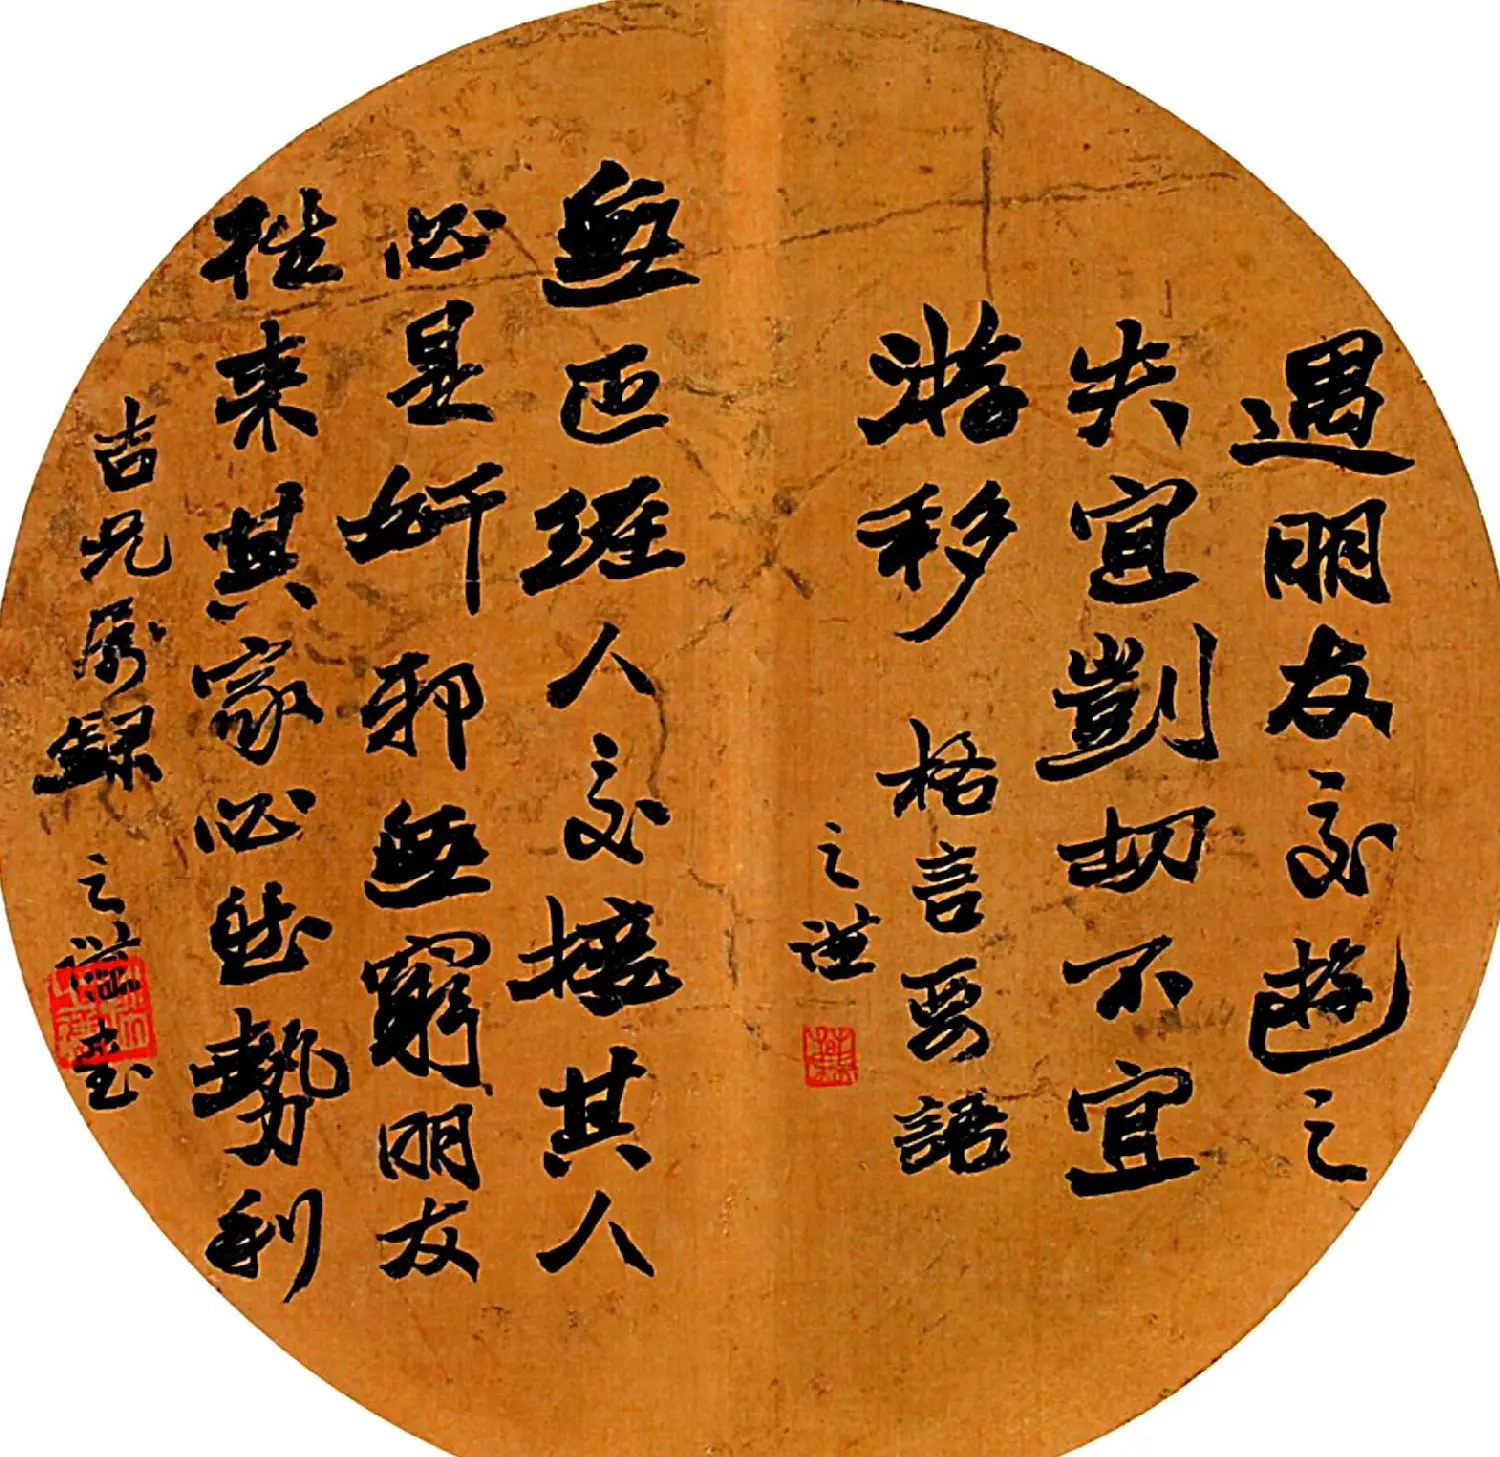 遇朋友交遊之
失宜剴切不宜
游移 格言要語
之謙
無正經人交接其人
必是奸邪無窮朋友
往來其家必然勢利
吉兄屬錄 之謙